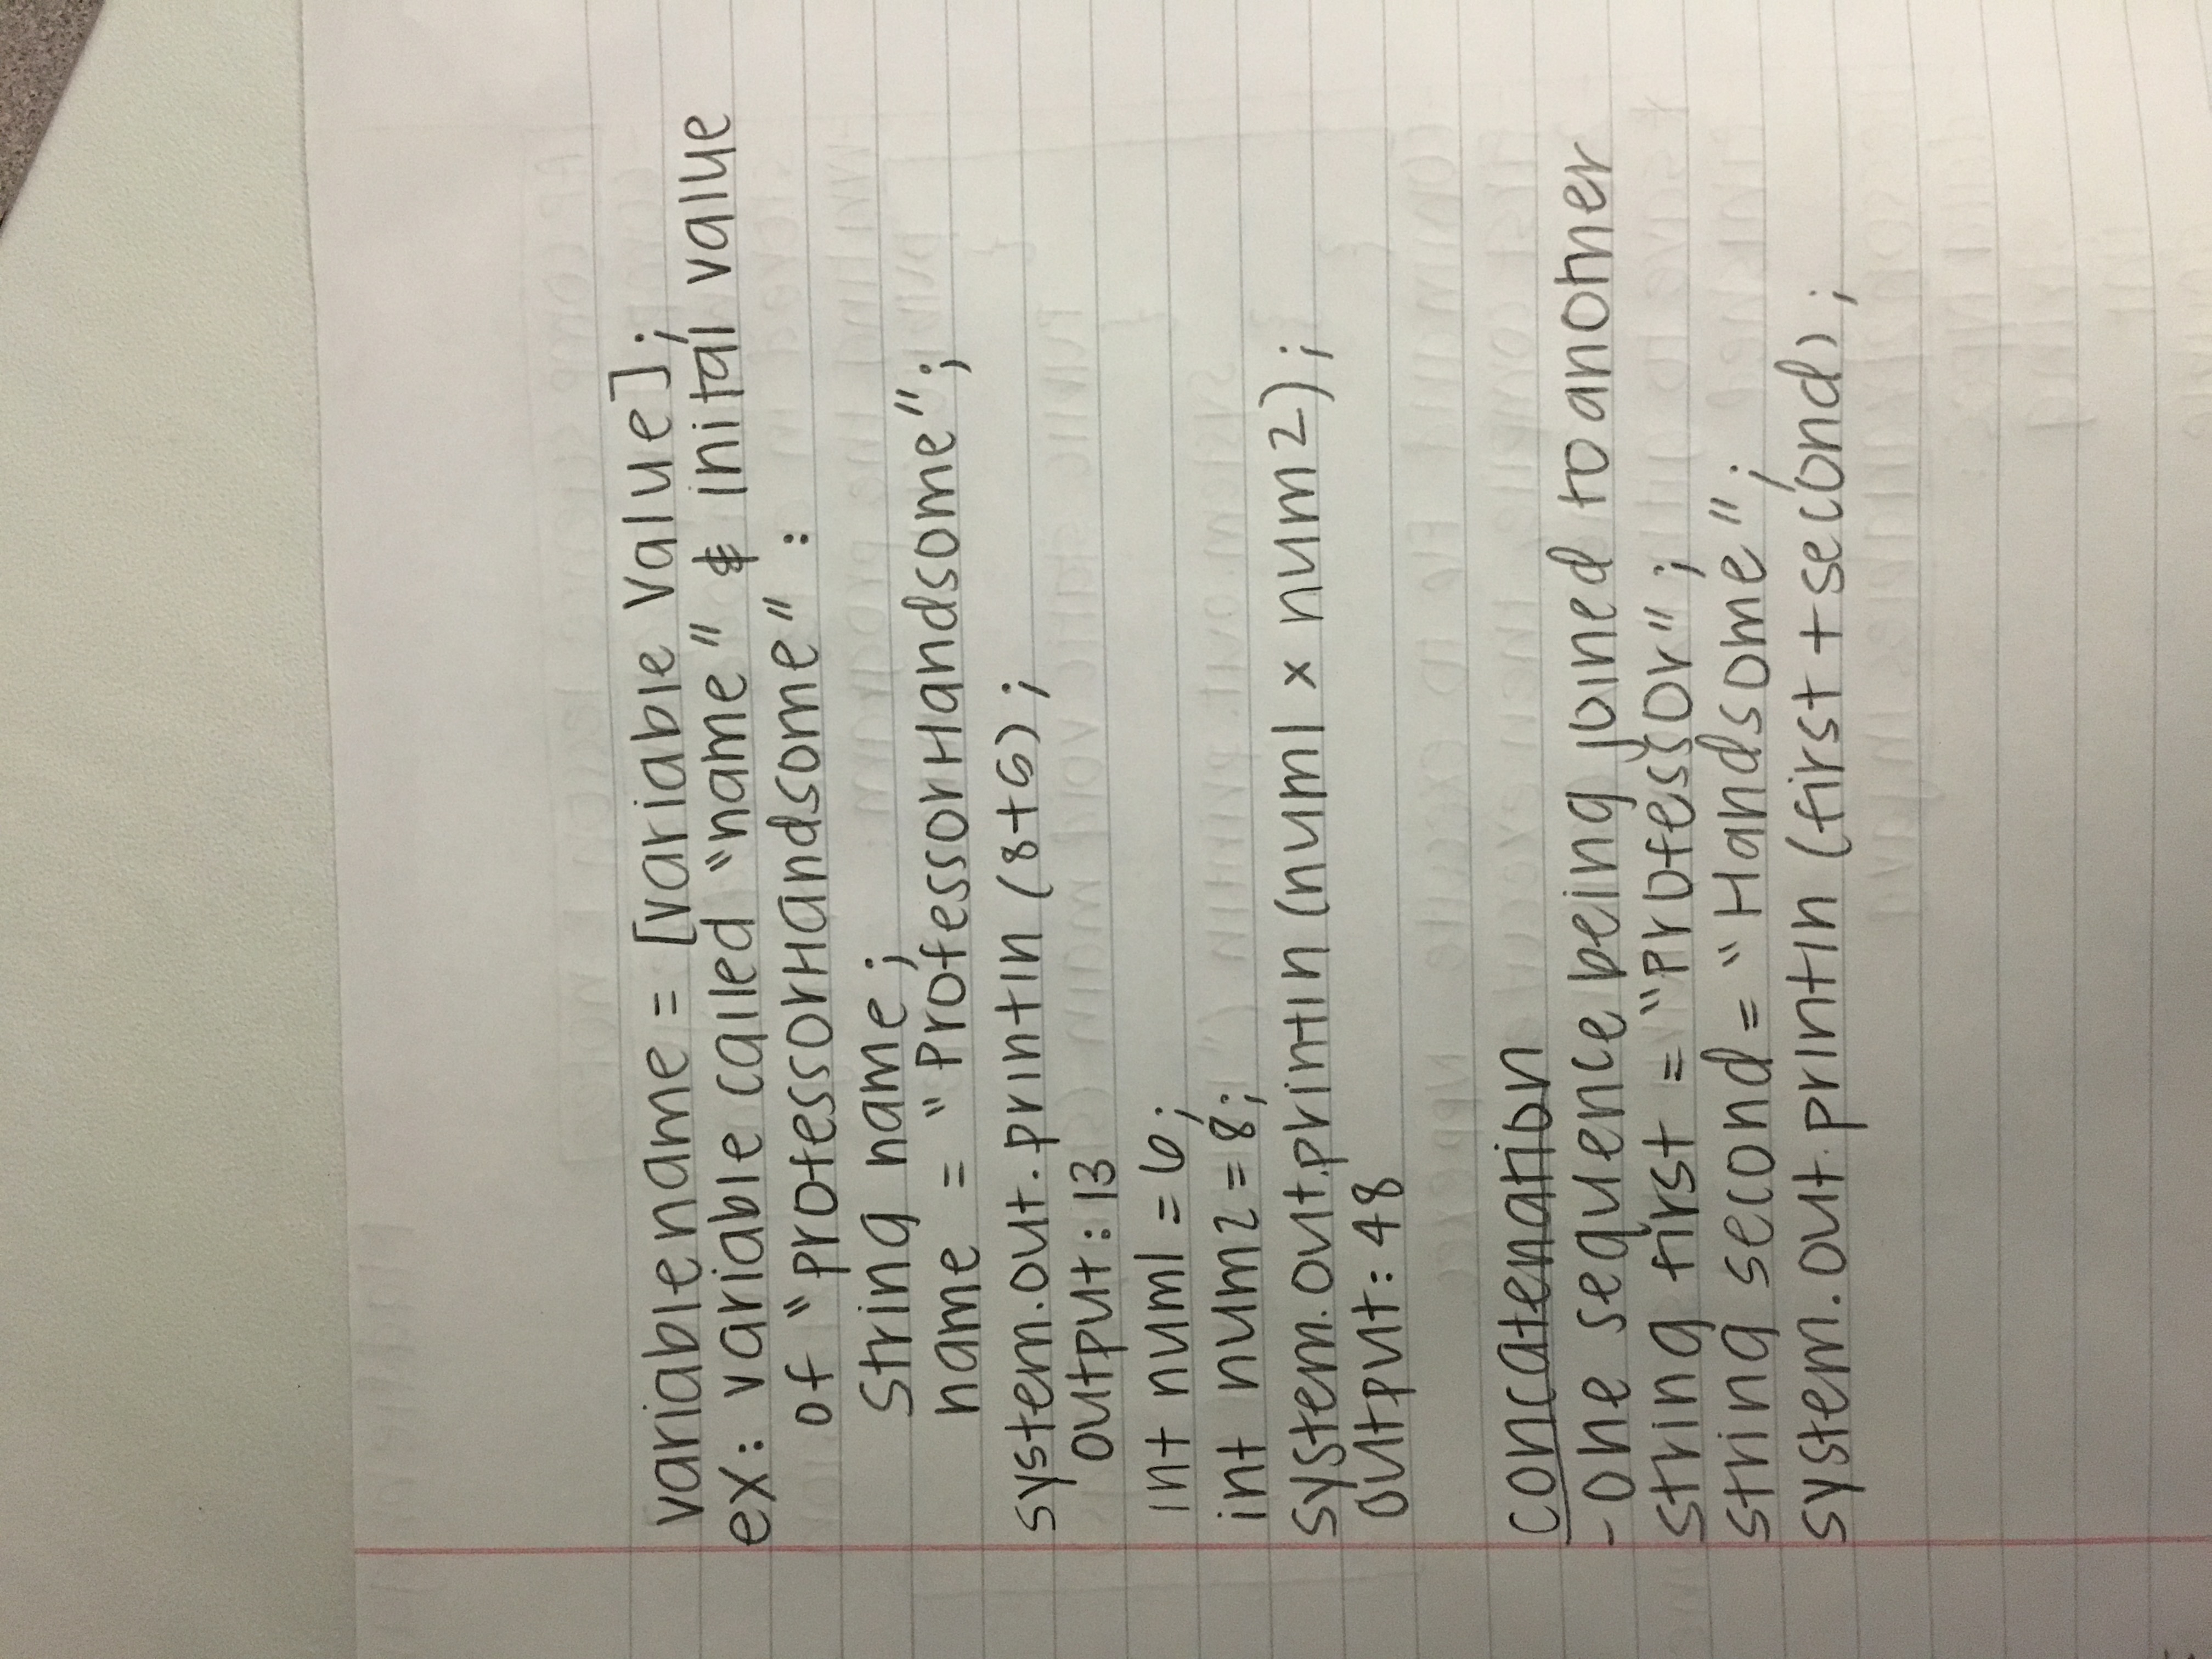 variablename = [variable Value];
ex: variable called "name" & inital value
of "professorHandsome" :
String name;
name = "ProfessorHandsome";
system.out.println (8+6);
output: 13
int num1 = 6;
int num2 = 8;
system.out.println (num1 x num2);
output: 48
concatenation
-one sequence being joined to another
string first = "Professor";
string second = "Handsome";
system.out.println (first + second);